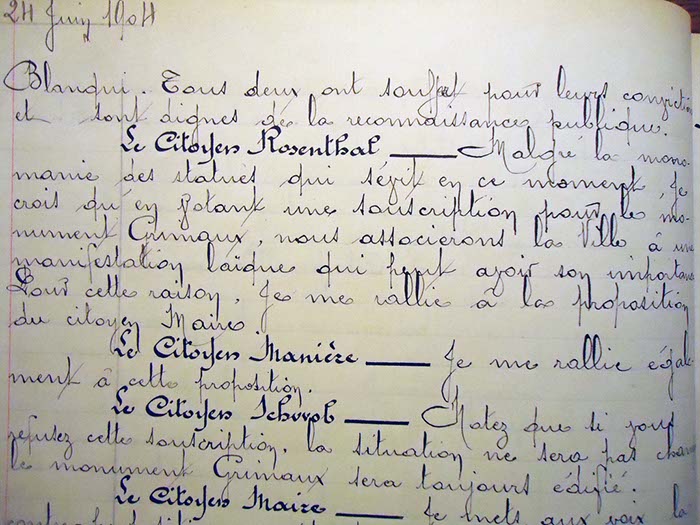 24 Juin 1904
Blanqui. Tous deux ont souffert pour leurs convictio
et sont dignes de la reconnaissance publique.
Le Citoyen Rosenthal — Malgré la mono-
manie des statues qui sévit en ce moment, Je
crois qu'en votant une souscription pour le mo-
nument Grimaux, nous associerons la Ville à une
manifestation laïque qui peut avoir son importance
Pour cette raison, Je me rallie à la proposition
du citoyen Maire.
Le Citoyen Manière — Je me rallie égale-
ment à cette proposition.
Le Citoyen Schwob — Notez que si vous
refusez cette souscription, la situation ne sera pas chan
le monument Grimaux sera toujours édifié.
Le Citoyen Maire — Je mets aux voix la